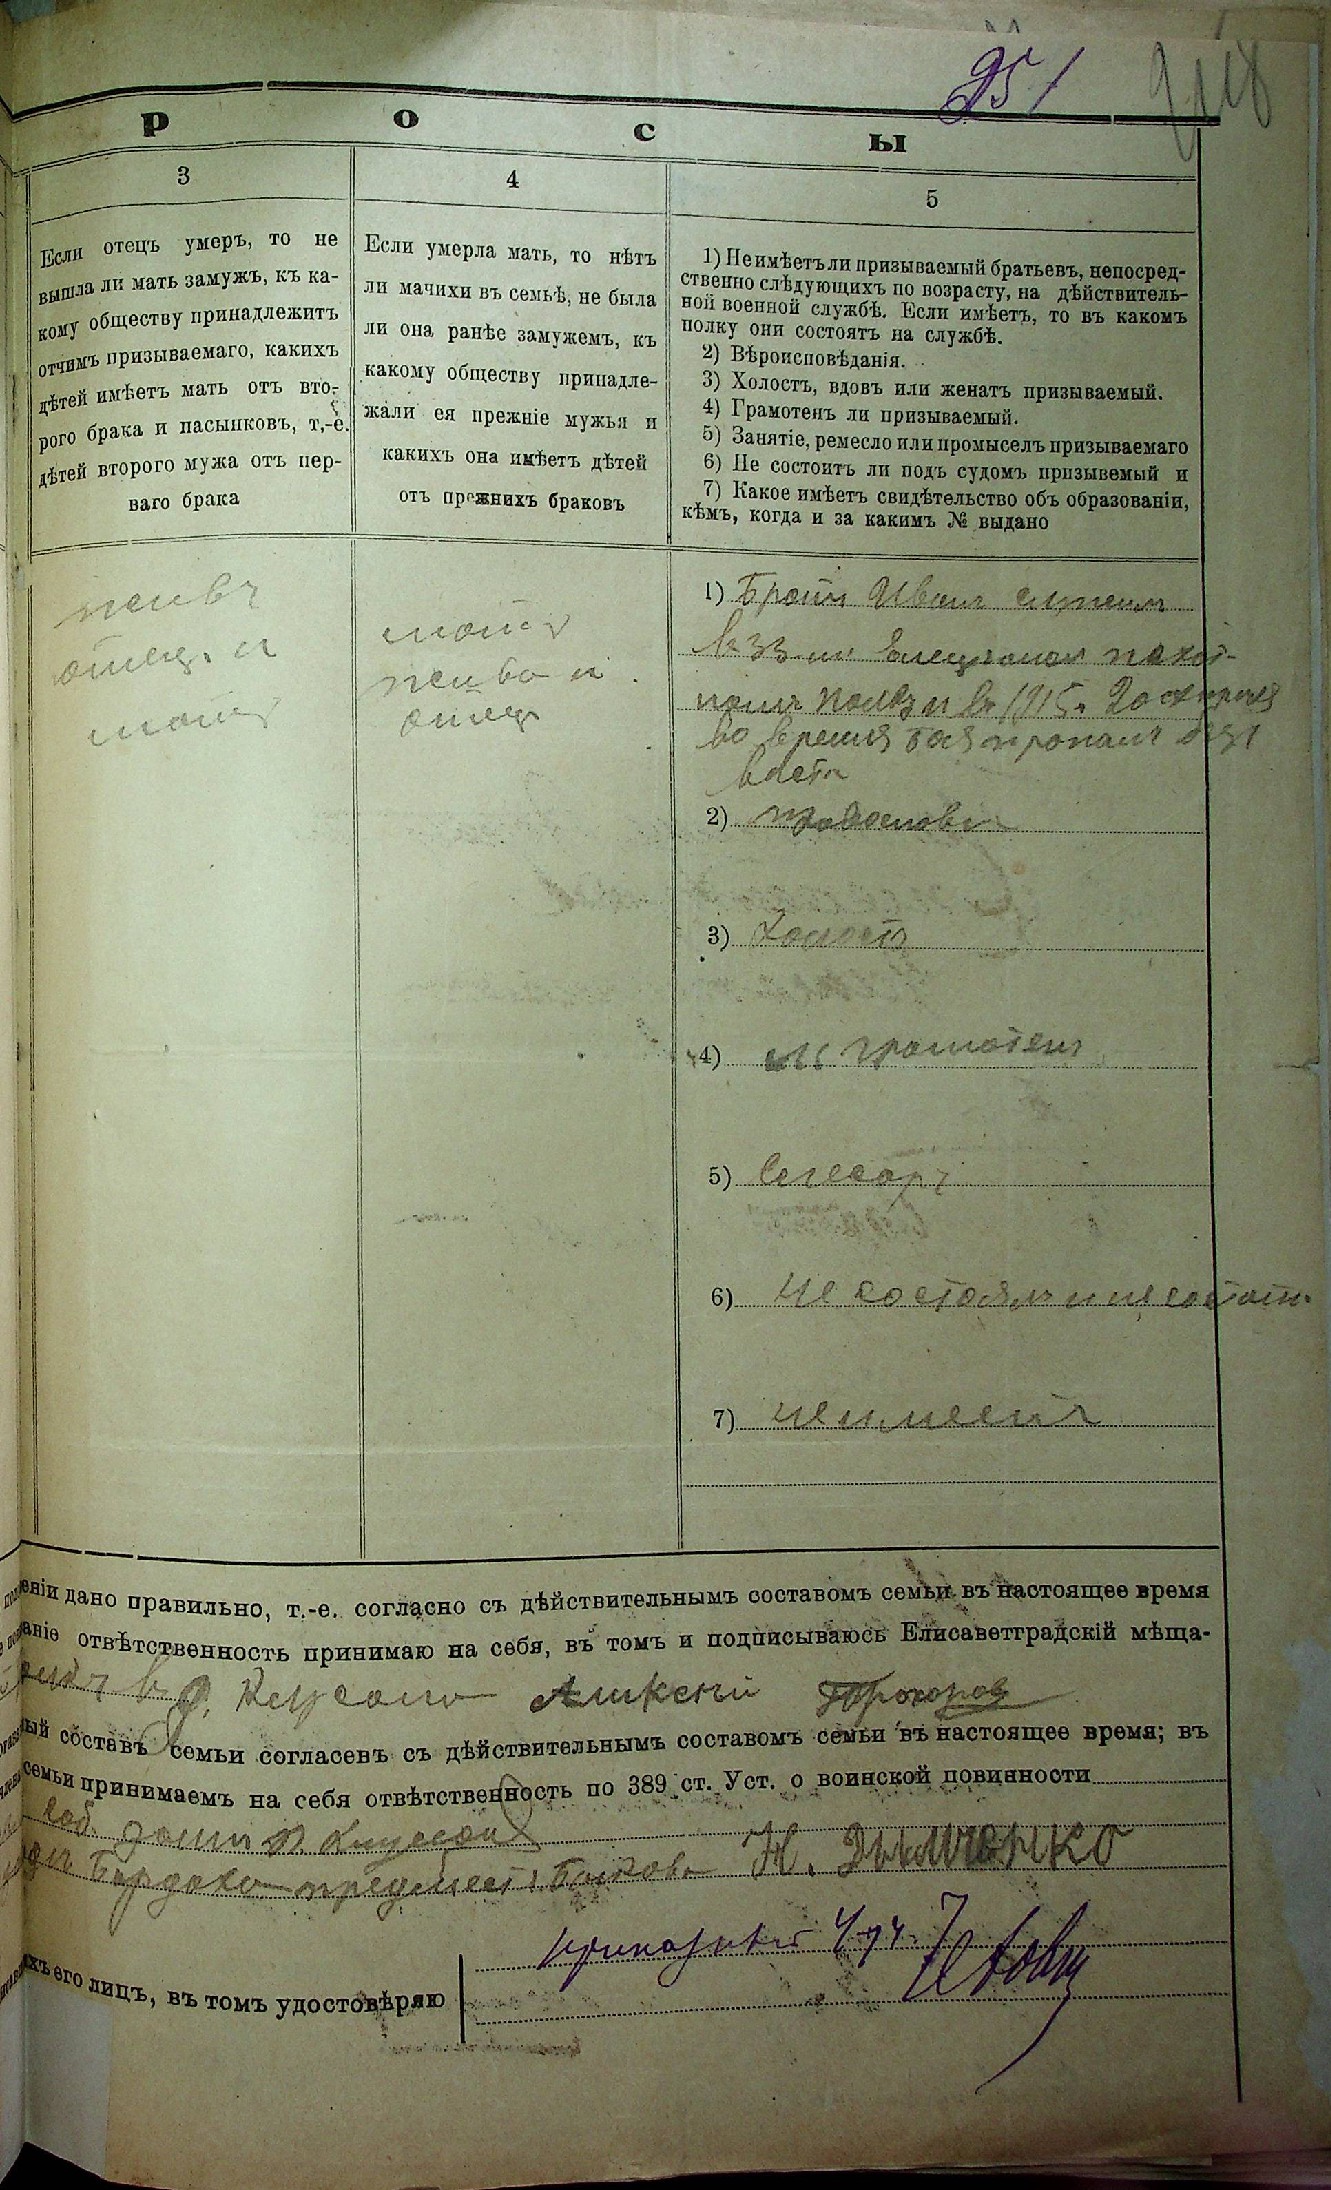 251
Р О С Ы
3
Если отецъ умеръ, то не
вышла ли мать замужъ, къ ка-
кому обществу принадлежитъ
отчимъ призываемаго, какихъ
дѣтей имѣетъ мать отъ вто-
рого брака и пасынковъ, т.-е.
дѣтей второго мужа отъ пер-
ваго брака
живъ
отецъ и
мать
4
Если умерла мать, то нѣтъ
ли мачихи въ семьѣ, не была
ли она ранѣе замужемъ, къ
какому обществу принадле-
жали ея прежніе мужья и
какихъ она имѣетъ дѣтей
отъ прежнихъ браковъ
мать
жива и
отец
5
1) Не имѣетъ ли призываемый братьевъ, непосред-
ственно слѣдующихъ по возрасту, на дѣйствитель-
ной военной службѣ. Если имѣетъ, то въ какомъ
полку они состоятъ на службѣ.
2) Вѣроисповѣданія.
3) Холостъ, вдовъ или женатъ призываемый.
4) Грамотенъ ли призываемый.
5) Занятіе, ремесло или промыселъ призываемаго
6) Не состоитъ ли подъ судомъ призывемый и
7) Какое имѣетъ свидѣтельство объ образованіи,
кѣмъ, когда и за какимъ № выдано
1) Братъ Иван служил
в 33-м Елецком пехот-
ном полку и в 1915 г. 20 апреля
во время боя пропалъ без
вести
2) православн
3) Холостъ
4) грамотенъ
5) Слесарь
6) не состоялъ и не состоит
7) не имеетъ
еніи дано правильно, т.-е. согласно съ дѣйствительнымъ составомъ семьи въ настоящее время
аніе отвѣтственность принимаю на себя, въ томъ и подписываюсь Елисаветградскій мѣща-
Алексѣй Прохоров
ый составъ семьи согласенъ съ дѣйствительнымъ составомъ семьи въ настоящее время; въ
семьи принимаемъ на себя отвѣтственность по 389 ст. Уст. о воинской повинности
соб. дом
предмест. Быкова Н.
ихъ его лицъ, въ томъ удостовѣряю